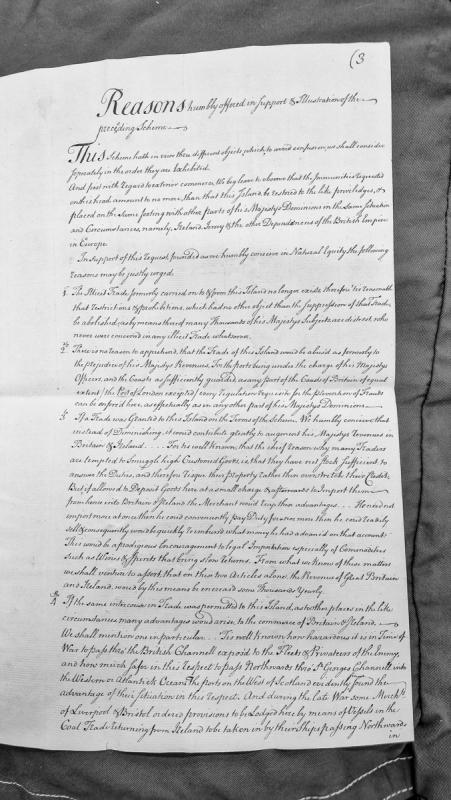 (3
Reasons humbly offered in support & Illustration of the
preceding Scheme
This Scheme hath in view three different objects, which, to avoid confusion, we shall consider
seperately in the order they are Exhibited.
And first with Regard to external commerce, We beg leave to observe that the Immunities requested
on this head amount to no more than that this Island be restored to the like priviledges, &
placed on the same footing with other parts of his Majestys Dominions in the same Situation
and Circumstances, namely, Ireland Jersey & the other Dependencies of the British Empire
in Europe.
In support of this request founded as we humbly conceive in Natural Equity the following
reasons may be justly urged.
1. The Illicit Trade formerly carried on to & from this Island no longer exists therefore 'tis reasonable
that restrictions & prohibitions, which had no other object than the suppression of that Trade,
be abolished, as by means thereof many Thousands of his Majestys Subjects are distrest who
never were concerned in any illicit Trade whatsoever.
2 There is no reason to apprehend, that the Trade of this Island would be abused as formerly to
the prejudice of his Majestys Revenues, For the ports being under the charge of his Majestys
Officers, and the Coasts as sufficiently guarded as any part of the Coasts of Britain of equal
extent (the Port of London excepted) every regulation requisite for the prevention of Frauds
can be enforced here as effectually as in any other part of his Majestys Dominions
3 If a Trade was Granted to this Island on the Terms of the Scheme. We humbly conceive that
instead of Diminishing, it would contribute greatly to augment his Majestys revenues in
Britain & Ireland . . . . For tis well known, that the chief reason why many Traders
are tempted to Smuggle high Customed Goods, is, that they have not Stock sufficient to
answer the Duties, and therefore risque their property rather than overstretch their Credit:
But if allowed to Deposit Goods here at a small charge & afterwards to Import them
from hence into Britain & Ireland the Merchant would reap these advantages . . . He need not
import more at once than he could conveniently pay Duty for at a time then he could readily
sell & consequently would be quickly reimbursed what money he had advanced on that account.
This would be a prodigious Encouragement to legal Importation especially of Commodities
Such as Wines & Spirits that bring slow returns. From what we know of these matters
we shall venture to assert, that on these two Articles alone, the Revenue of Great Britain
and Ireland, would by this means be encreased some Thousands Yearly.
4 If the same intercourse in Trade was permitted to this Island, as to other places in the like
circumstances many advantages would arise to the commerce of Britain & Ireland.
We shall mention one in particular . . . Tis well known how hazardous it is in Time of
War to pass thro' the British Channell exposed to the Fleets & Privateers of the Enemy,
and how much safer in this respect to pass Northwards thro' St. Georges Channell into
the Western or Atlantick Ocean. The ports on the West of Scotland evidently found the
advantage of their situation in this respect. And during the late War some Merchts.
of Liverpool & Bristol ordered provisions to be Lodged here by means of Vessels in the
Coal Trade returning from Ireland to be taken in by their Ships passing Northwards
in